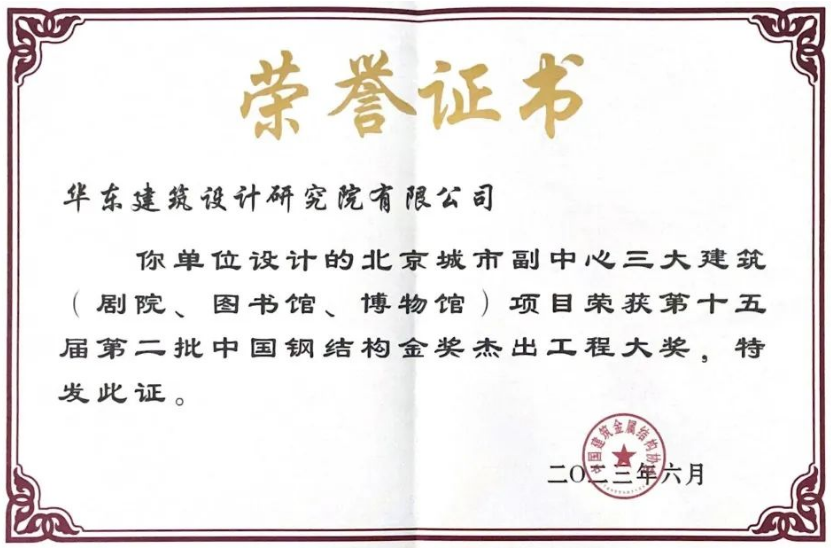 荣誉证书
华东建筑设计研究院有限公司
你单位设计的北京城市副中心三大建筑
（剧院、图书馆、博物馆）项目荣获第十五
届第二批中国钢结构金奖杰出工程大奖，特
发此证。
中国建筑金属结构协会
二〇二三年六月